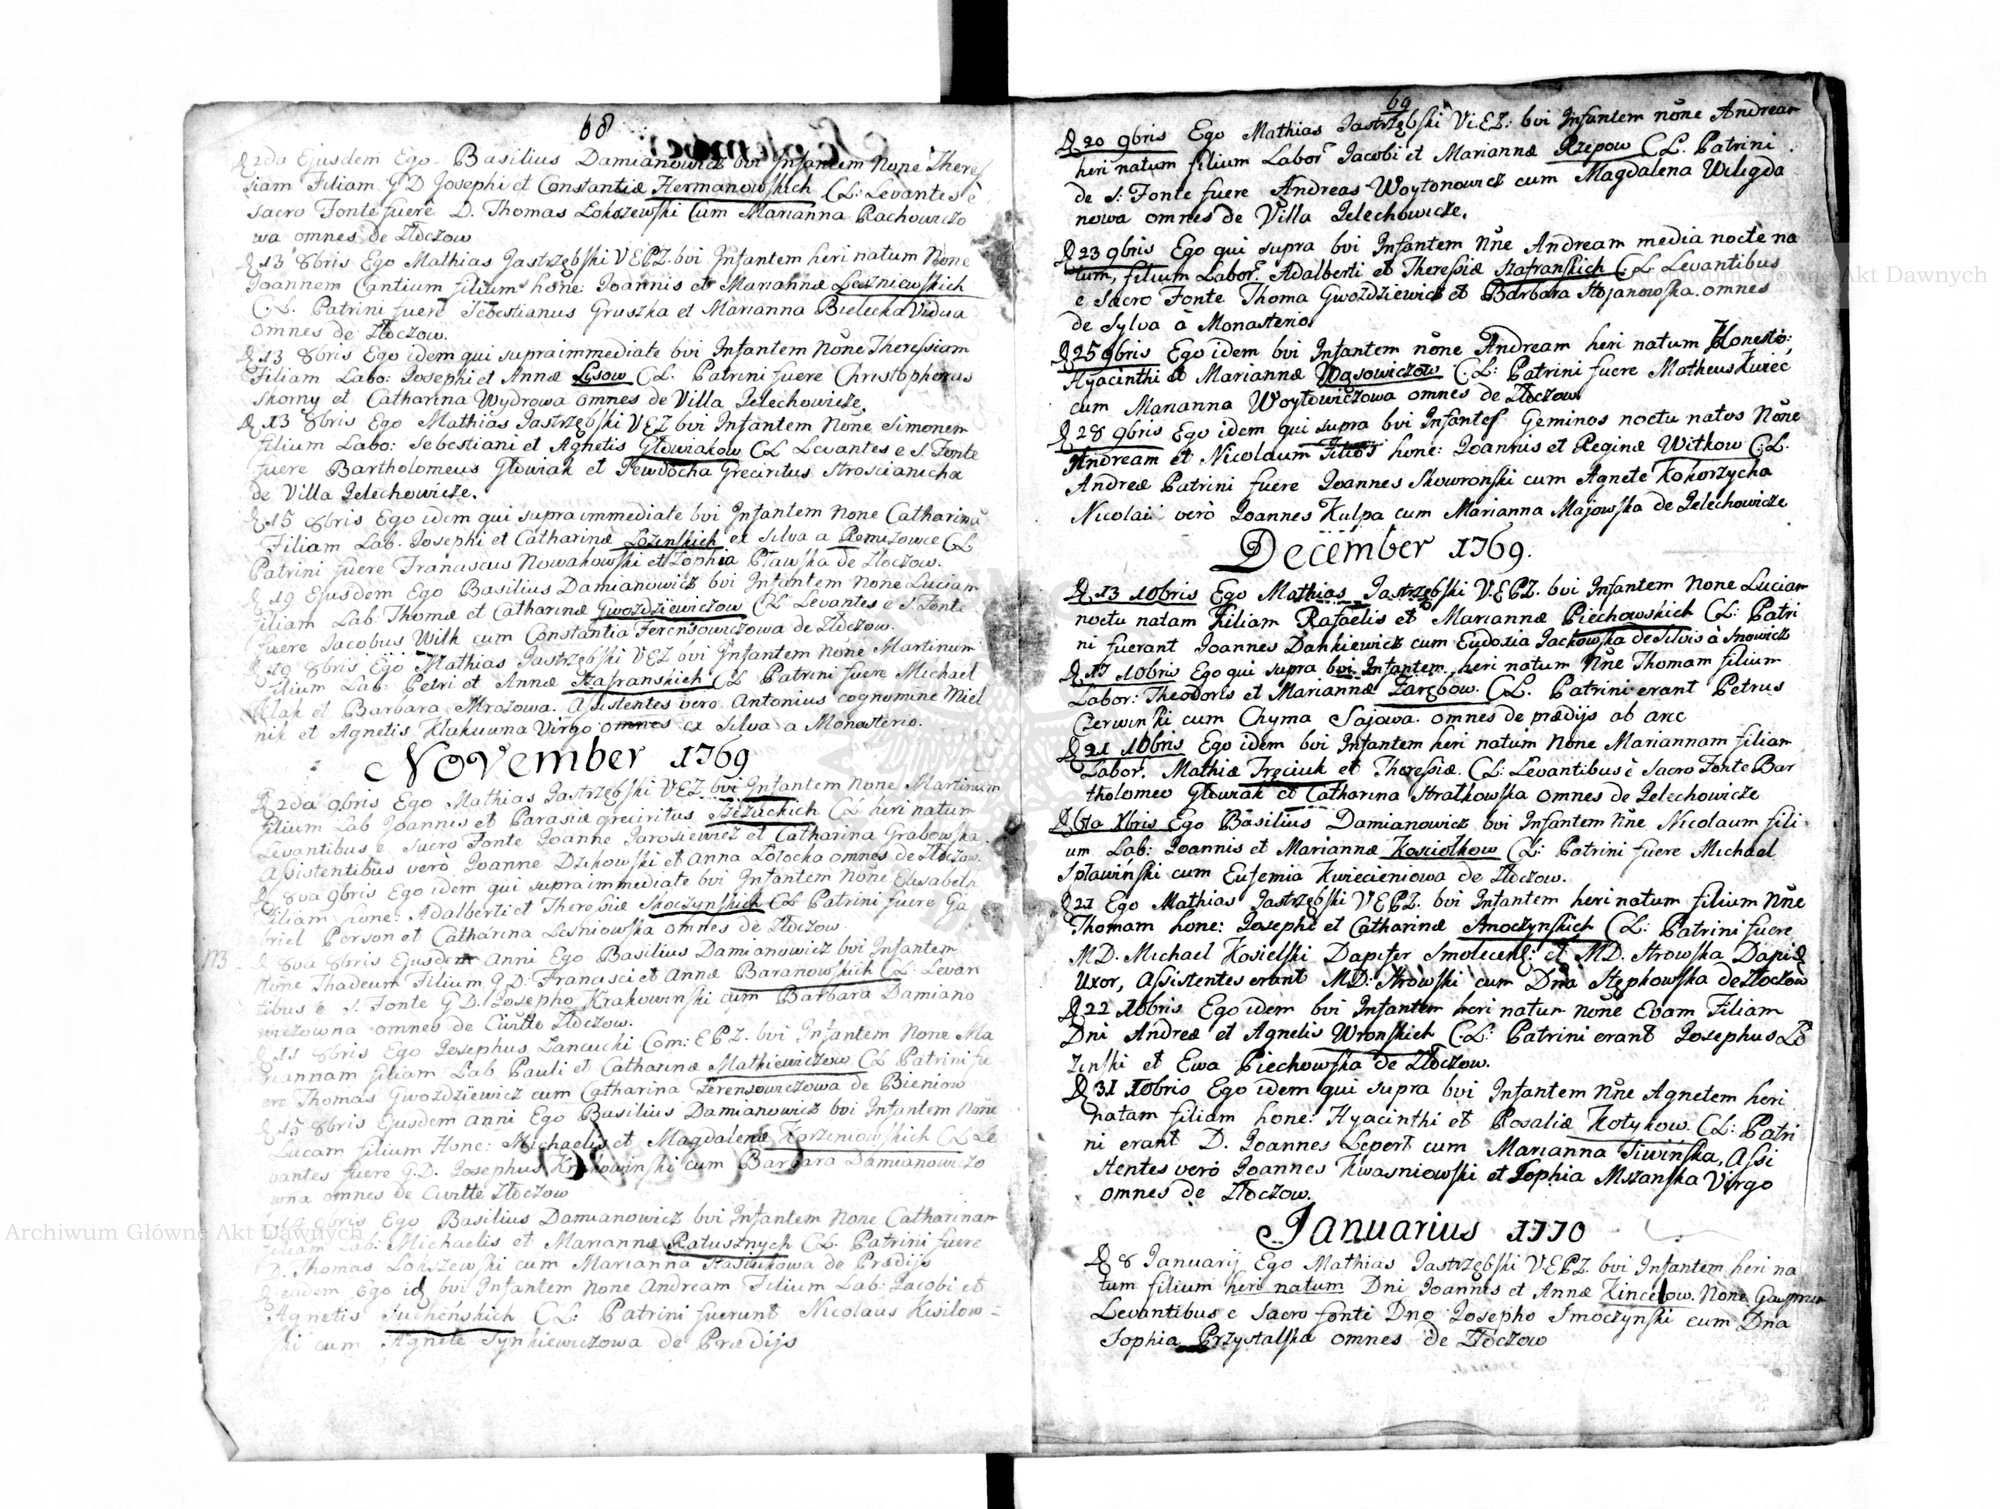 68
D 2da Ejusdem Ego Basilius Damianowicz bvi Infantem None There
siam Filiam G D Josephi et Constantiæ Hermanowskich C.L: Levantes è
Sacro Fonte fuere D. Thomas Lokszewski Cum Marianna Rachowiczo
wa omnes de Złoczow
D 13 8bris Ego Mathias Jastrzębski VEPZ. bvi Infantem heri natum None
Joannem Cantium filium hone: Joannis et Mariannæ Lesniewskich
C.L. Patrini fuere Sebestianus Gruszka et Marianna Bielecka Vidua
omnes de Złoczow.
D 13 8bris Ego idem qui supra immediate bvi Infantem None Theressiam
Filiam Labo: Josephi et Annæ Lisow C.L. Patrini fuere Christophorus
Skorny et Catharina Wydrowa omnes de Villa Jelechowicze.
D 13 8bris Ego Mathias Jastrzębski VEZ bvi Infantem None Simonem
filium Labo: Sebestiani et Agnetis Głowiakow CL Levantes e S. Fonte
fuere Bartholomeus Głowiak et Fewdocha Greciritus Stroscianicha
de Villa Jelechowicze.
D 15 8bris Ego idem qui supra immediate bvi Infantem None Catharinã
Filiam Lab. Josephi et Catharinæ Lozinskich ex Silva a Remizowce CL
Patrini fuere Franciscus Nowakowski et Zophia Pławska de Złoczow.
D 19 Ejusdem Ego Basilius Damianowicz bvi Infantem None Luciam
Filiam Lab. Thomæ et Catharinæ Gwozdziewiczow CL Levantes e S. Fonte
fuere Jacobus Wilk cum Constantia Ferensowiczowa de Złoczow.
D 29 8bris Ego Mathias Jastrzębski VEZ bvi Infantem None Martinum
filium Lab: Petri et Annæ Szafranskich CL Patrini fuere Michael
Klak et Barbara Mrozowa. Assistentes vero Antonius cognomine Miel
nik et Agnetis Klakuwna Virgo omnes ex Silva a Monasterio.
November 1769
D 2da 9bris Ego Mathias Jastrzębski VEZ. bvi Infantem None Martinum
filium Lab Joannis et Parasiæ greciritus Sziżuckich CL heri natum
Levantibus e Sacro Fonte Joanne Jarosiewicz et Catharina Grabowska
Assistentibus verò Joanne Dzikowski et Anna Lozocka omnes de Złoczow.
D 8va 9bris Ego idem qui supra immediate bvi Infantem None Elisabeth
Filiam hone: Adalberti et Theressiæ Skoczynskich CL Patrini fuere Ga
briel Person et Catharina Lesniowska omnes de Złoczow.
D 8va 8bris Ejusdem Anni Ego Basilius Damianowicz bvi Infantem
None Thadeum Filium G D: Francisci et Annæ Baranowskich CL: Levan
tibus e S. Fonte G D. Josepho Krakowinski cum Barbara Damiano
wiczowna omnes de Civitte Złoczow.
D 11 8bris Ego Josephus Lancucki Com: EPZ. bvi Infantem None Ma
riannam filiam Lab Pauli et Catharinæ Mathiewiczow CL Patrini fu
ere Thomas Gwozdziewicz cum Catharina Ferensowiczowa de Bieniow
D 15 8bris Ejusdem anni Ego Basilius Damianowicz bvi Infantem None
Lucam filium Hone: Michaelis et Magdalenæ Korzeniowskich CL Le
vantes fuere G.D. Josephus Krakowinski cum Barbara Damianowiczo
wna omnes de Civitte Złoczow
9bris Ego Basilius Damianowicz bvi Infantem None Catharinam
filiam Lab: Michaelis et Mariannæ Ratusznych C.L. Patrini fuere
D. Thomas Lokszewski cum Marianna Stasiukowa de Prædijs
D eadem Ego id bvi Infantem None Andream Filium Lab: Jacobi et
Agnetis Suchenskich C.L: Patrini fuerunt Nicolaus Kisilow-
ski cum Agnete Synkiewiczowa de Prædijs
69
D 20 9bris Ego Mathias Jastrzębski V.E.Z: bvi Infantem none Andream
heri natum filium Labor. Jacobi et Mariannæ Rzepow C.L. Patrini
de S: Fonte fuere Andreas Woytonowicz cum Magdalena Wiligda
nowa omnes de Villa Jelechowicze.
D 23 9bris Ego qui supra bvi Infantem Nne Andream media nocte na
tum, filium Labor. Adalberti et Theressiæ Szafranskich C.L Levantibus
e Sacro Fonte Thoma Gwozdziewicz et Barbara Stojanowska omnes
de Sylva à Monasterio
D 25 9bris Ego idem bvi Infantem none Andream heri natum Honesto:
Hyacinthi et Mariannæ Wąsowiczow C.L: Patrini fuere Matheus Kurec
cum Marianna Woytowiczowa omnes de Złoczow.
D 28 9bris Ego idem qui supra bvi Infantes Geminos noctu natos None
Andream et Nicolaum Filios hone: Joannis et Reginæ Witkow C.L:
Andreæ Patrini fuere Joannes Skowronski cum Agnete Kokorzycha
Nicolai verò Joannes Kulpa cum Marianna Majowska de Jelechowicze
December 1769.
D 13 10bris Ego Mathias Jastrzębski V.EPZ. bvi Infantem None Luciam
noctu natam Filiam Rafaelis et Mariannæ Piechowskich C.L: Patri
ni fuerant Joannes Dankiewicz cum Eudoxia Jackowska de Silvis à Snowicz
D 17 10bris Ego qui supra bvi Infantem heri natum Nne Thomam filium
Labor: Theodoris et Mariannæ Zarębow. C.L. Patrini erant Petrus
Czerwinski cum Chyma Sajowa. omnes de prædijs ab arce
D 21 10bris Ego idem bvi Infantem heri natam None Mariannam filiam
Labor. Mathiæ Fręciuk et Theressiæ. C.L: Levantibus è Sacro Fonte Bar
tholomeo Głowiak et Catharina Stratkowska omnes de Jelechowicze
D 6ta Xbris Ego Basilius Damianowicz bvi Infantem Nne Nicolaum fili
um Lab: Joannis et Mariannæ Kosciołkow C.L: Patrini fuere Michael
Spławiński cum Eufemia Kwiecieniowa de Złoczow.
D 21 Ego Mathias Jastrzębski VEPZ. bvi Infantem heri natum filium Nne
Thomam hone: Josephi et Catharinæ Smoczynskich C.L: Patrini fuere
MD. Michael Kosielski Dapifer Smolecens: et MD. Strowska Dapif
Uxor, Assistentes erant MD: Strowski cum Dna Stępkowska de Złoczow
D 22 10bris Ego idem bvi Infantem heri natam none Evam Filiam
Dni Andreæ et Agnetis Wronskich C.L: Patrini erant Josephus Lo
zinski et Ewa Piechowska de Złoczow.
D 31 10bris Ego idem qui supra bvi Infantem Nne Agnetem heri
natam filiam hone: Hyacinthi et Rosaliæ Kotykow. C.L: Patri
ni erant D. Joannes Lepert cum Marianna Siwińska, Assi
stentes verò Joannes Kwasniowski et Sophia Mszanska Virgo
omnes de Złoczow.
Januarius 1770
D 8 Januarij Ego Mathias Jastrzębski VEPZ. bvi Infantem heri na
tum filium heri natum Dni Joannis et Annæ Kincelow. None Gasprum
Levantibus e Sacro fonti Dno Josepho Smoczynski cum Dna
Sophia Przystalska omnes de Złoczow
Archiwum Główne Akt Dawnych
Archiwum Główne Akt Dawnych